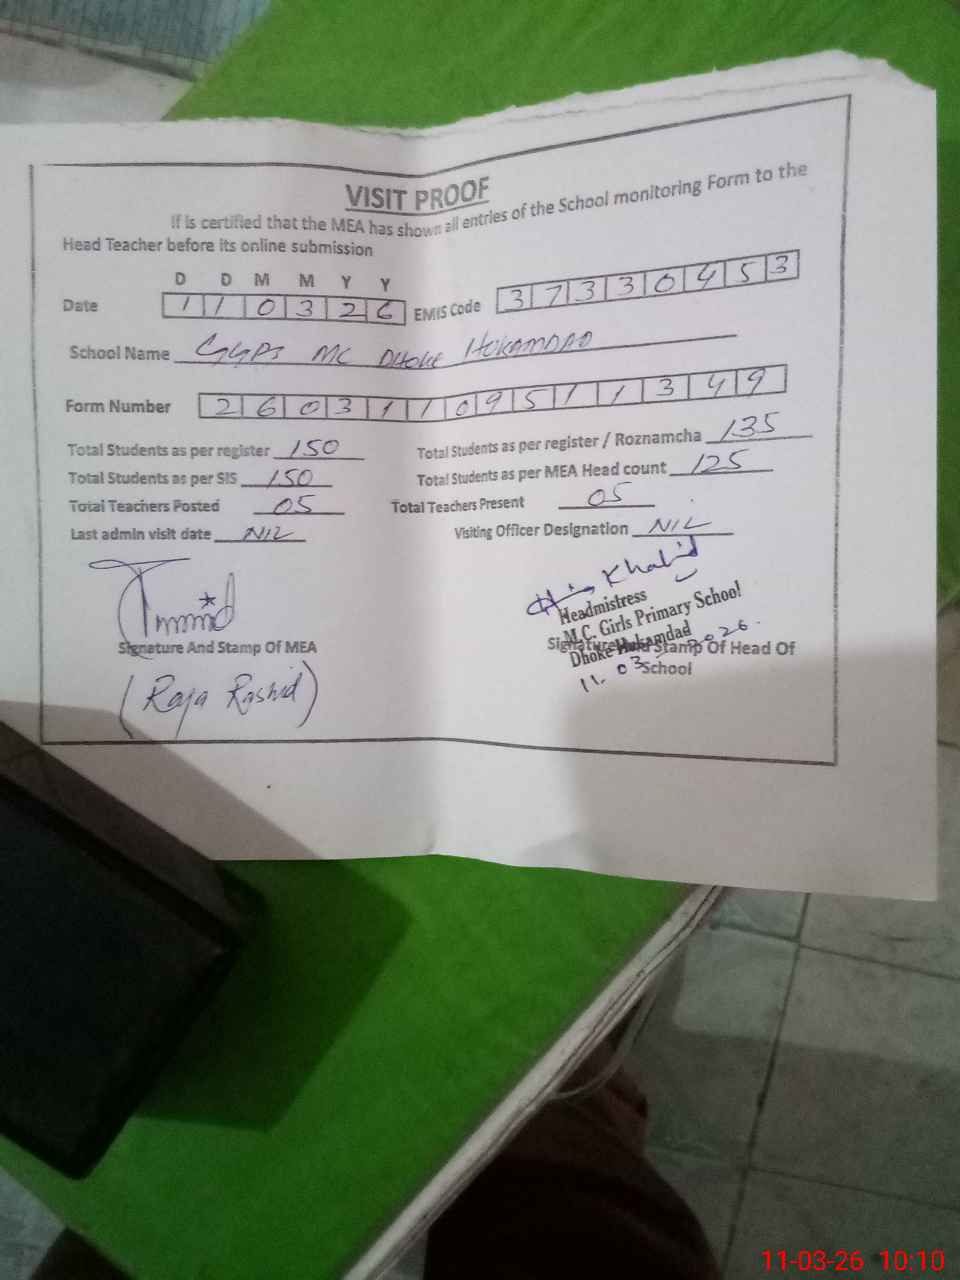 VISIT PROOF
If is certified that the MEA has shown all entries of the School monitoring Form to the
Head Teacher before its online submission
D D M M Y Y
Date 1 1 0 3 2 6 EMIS Code 3 7 3 3 0 4 5 3
School Name GGPS MC DHOKE HUKAMDAD
Form Number 2 6 0 3 1 1 0 9 5 1 1 3 4 9
Total Students as per register 150 Total Students as per register / Roznamcha 135
Total Students as per SIS 150 Total Students as per MEA Head count 125
Total Teachers Posted 05 Total Teachers Present 05
Last admin visit date NIL Visiting Officer Designation NIL
Khalid
Headmistress
M.C. Girls Primary School
Dhoke Hukamdad
Signature And Stamp Of MEA Signature And Stamp Of Head Of
School
11.03.2026.
(Raja Rashid)
11-03-26 10:10